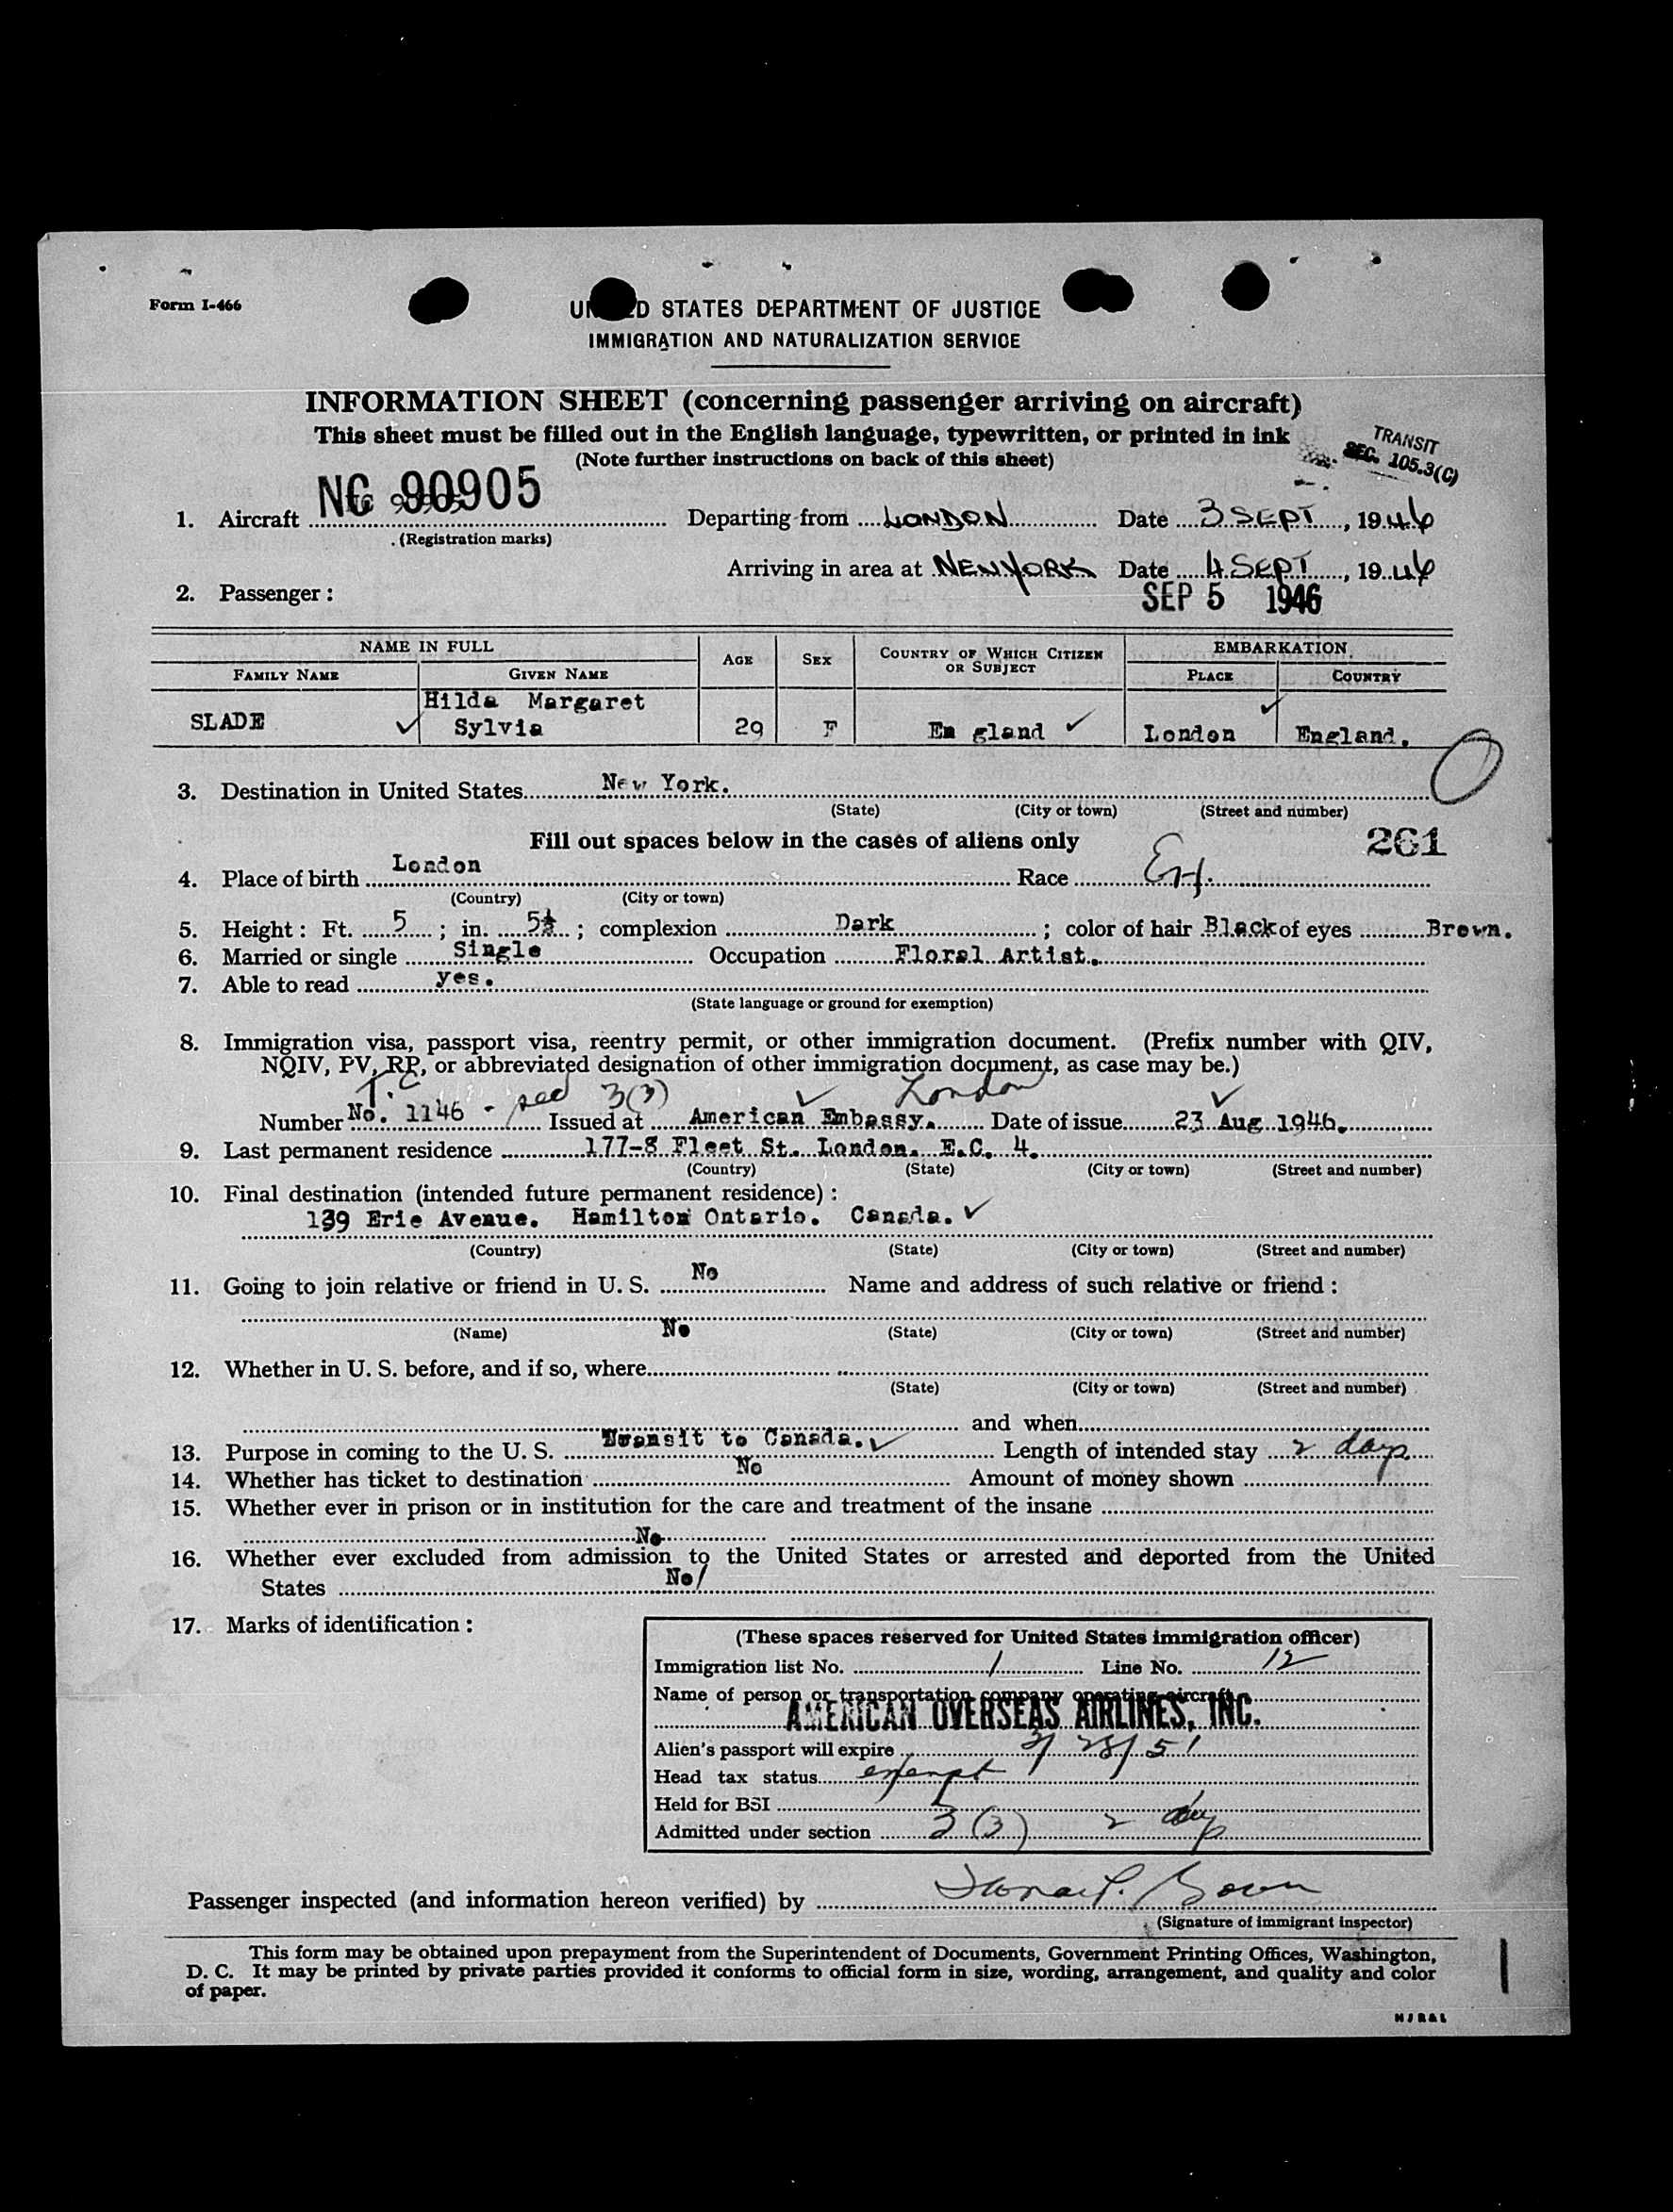 Form I-466
UNITED STATES DEPARTMENT OF JUSTICE
IMMIGRATION AND NATURALIZATION SERVICE
INFORMATION SHEET (concerning passenger arriving on aircraft)
This sheet must be filled out in the English language, typewritten, or printed in ink
(Note further instructions on back of this sheet)
TRANSIT
SEC. 105.3(C)
NC 90905
1. Aircraft Departing from LONDON Date 3 SEPT, 1946
(Registration marks)
Arriving in area at NEW YORK Date 4 SEPT, 1946
2. Passenger : SEP 5 1946
NAME IN FULL AGE SEX COUNTRY OF WHICH CITIZEN OR SUBJECT EMBARKATION
FAMILY NAME GIVEN NAME PLACE COUNTRY
Hilda Margaret
SLADE Sylvia 29 F En gland London England.
3. Destination in United States New York.
(State) (City or town) (Street and number)
Fill out spaces below in the cases of aliens only 261
4. Place of birth London Race
(Country) (City or town)
5. Height : Ft. 5 ; in. 5½ ; complexion Dark ; color of hair Black of eyes Brown.
6. Married or single Single Occupation Floral Artist.
7. Able to read yes.
(State language or ground for exemption)
8. Immigration visa, passport visa, reentry permit, or other immigration document. (Prefix number with QIV,
NQIV, PV, RP, or abbreviated designation of other immigration document, as case may be.)
T.C. sec 3(3) London
Number No. 1146 - Issued at American Embassy. Date of issue 23 Aug 1946.
9. Last permanent residence 177-8 Fleet St. London. E.C. 4.
(Country) (State) (City or town) (Street and number)
10. Final destination (intended future permanent residence) :
139 Erie Avenue. Hamilton Ontario. Canada.
(Country) (State) (City or town) (Street and number)
11. Going to join relative or friend in U. S. No Name and address of such relative or friend :
(Name) No (State) (City or town) (Street and number)
12. Whether in U. S. before, and if so, where
(State) (City or town) (Street and number)
and when
13. Purpose in coming to the U. S. Transit to Canada. Length of intended stay 2 days
14. Whether has ticket to destination No Amount of money shown
15. Whether ever in prison or in institution for the care and treatment of the insane
No
16. Whether ever excluded from admission to the United States or arrested and deported from the United
States No/
17. Marks of identification :
(These spaces reserved for United States immigration officer)
Immigration list No. 1 Line No. 12
Name of person or transportation company operating aircraft
AMERICAN OVERSEAS AIRLINES, INC.
Alien's passport will expire 2/28/51
Head tax status exempt
Held for BSI
Admitted under section 3(3) 2 days
Passenger inspected (and information hereon verified) by
(Signature of immigrant inspector)
This form may be obtained upon prepayment from the Superintendent of Documents, Government Printing Offices, Washington,
D. C. It may be printed by private parties provided it conforms to official form in size, wording, arrangement, and quality and color
of paper.